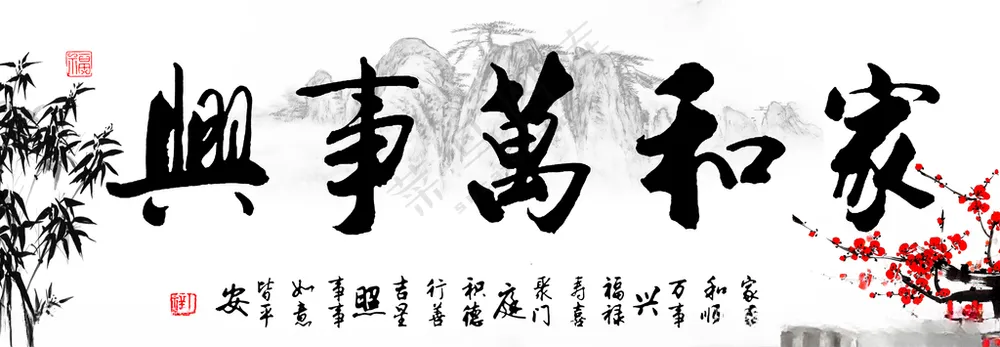 福
家和萬事興
家家
和顺
万事
兴
福禄
寿喜
聚门
庭
积德
行善
吉星
照
事事
如意
皆平
安